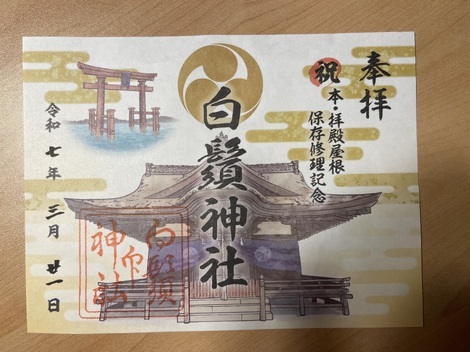 奉拝
祝 本・拝殿屋根
保存修理記念
白鬚神社
令和七年三月廿一日
白鬚
神社